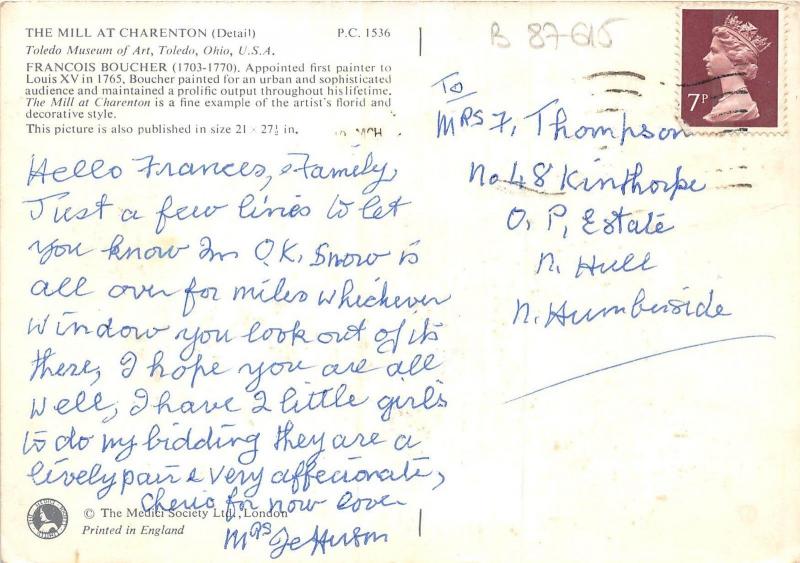 THE MILL AT CHARENTON (Detail) P.C. 1536
Toledo Museum of Art, Toledo, Ohio, U.S.A.
FRANCOIS BOUCHER (1703-1770). Appointed first painter to
Louis XV in 1765, Boucher painted for an urban and sophisticated
audience and maintained a prolific output throughout his lifetime.
The Mill at Charenton is a fine example of the artist's florid and
decorative style.
This picture is also published in size 21 × 27½ in.
Hello Frances, & Family,
Just a few lines to let
you know Im O.K. Snow is
all over for miles whichever
window you look out of its
there, I hope you are all
well, I have 2 little girls
to do my bidding they are a
lively pair & very affecionate,
Cherio for now love
Mrs Jefferson
© The Medici Society Ltd., London
Printed in England
B 87-615
7P
To
MRS F, Thompson
No 48 Kinthorpe
O, P, Estate
N. Hull
N. Humberside